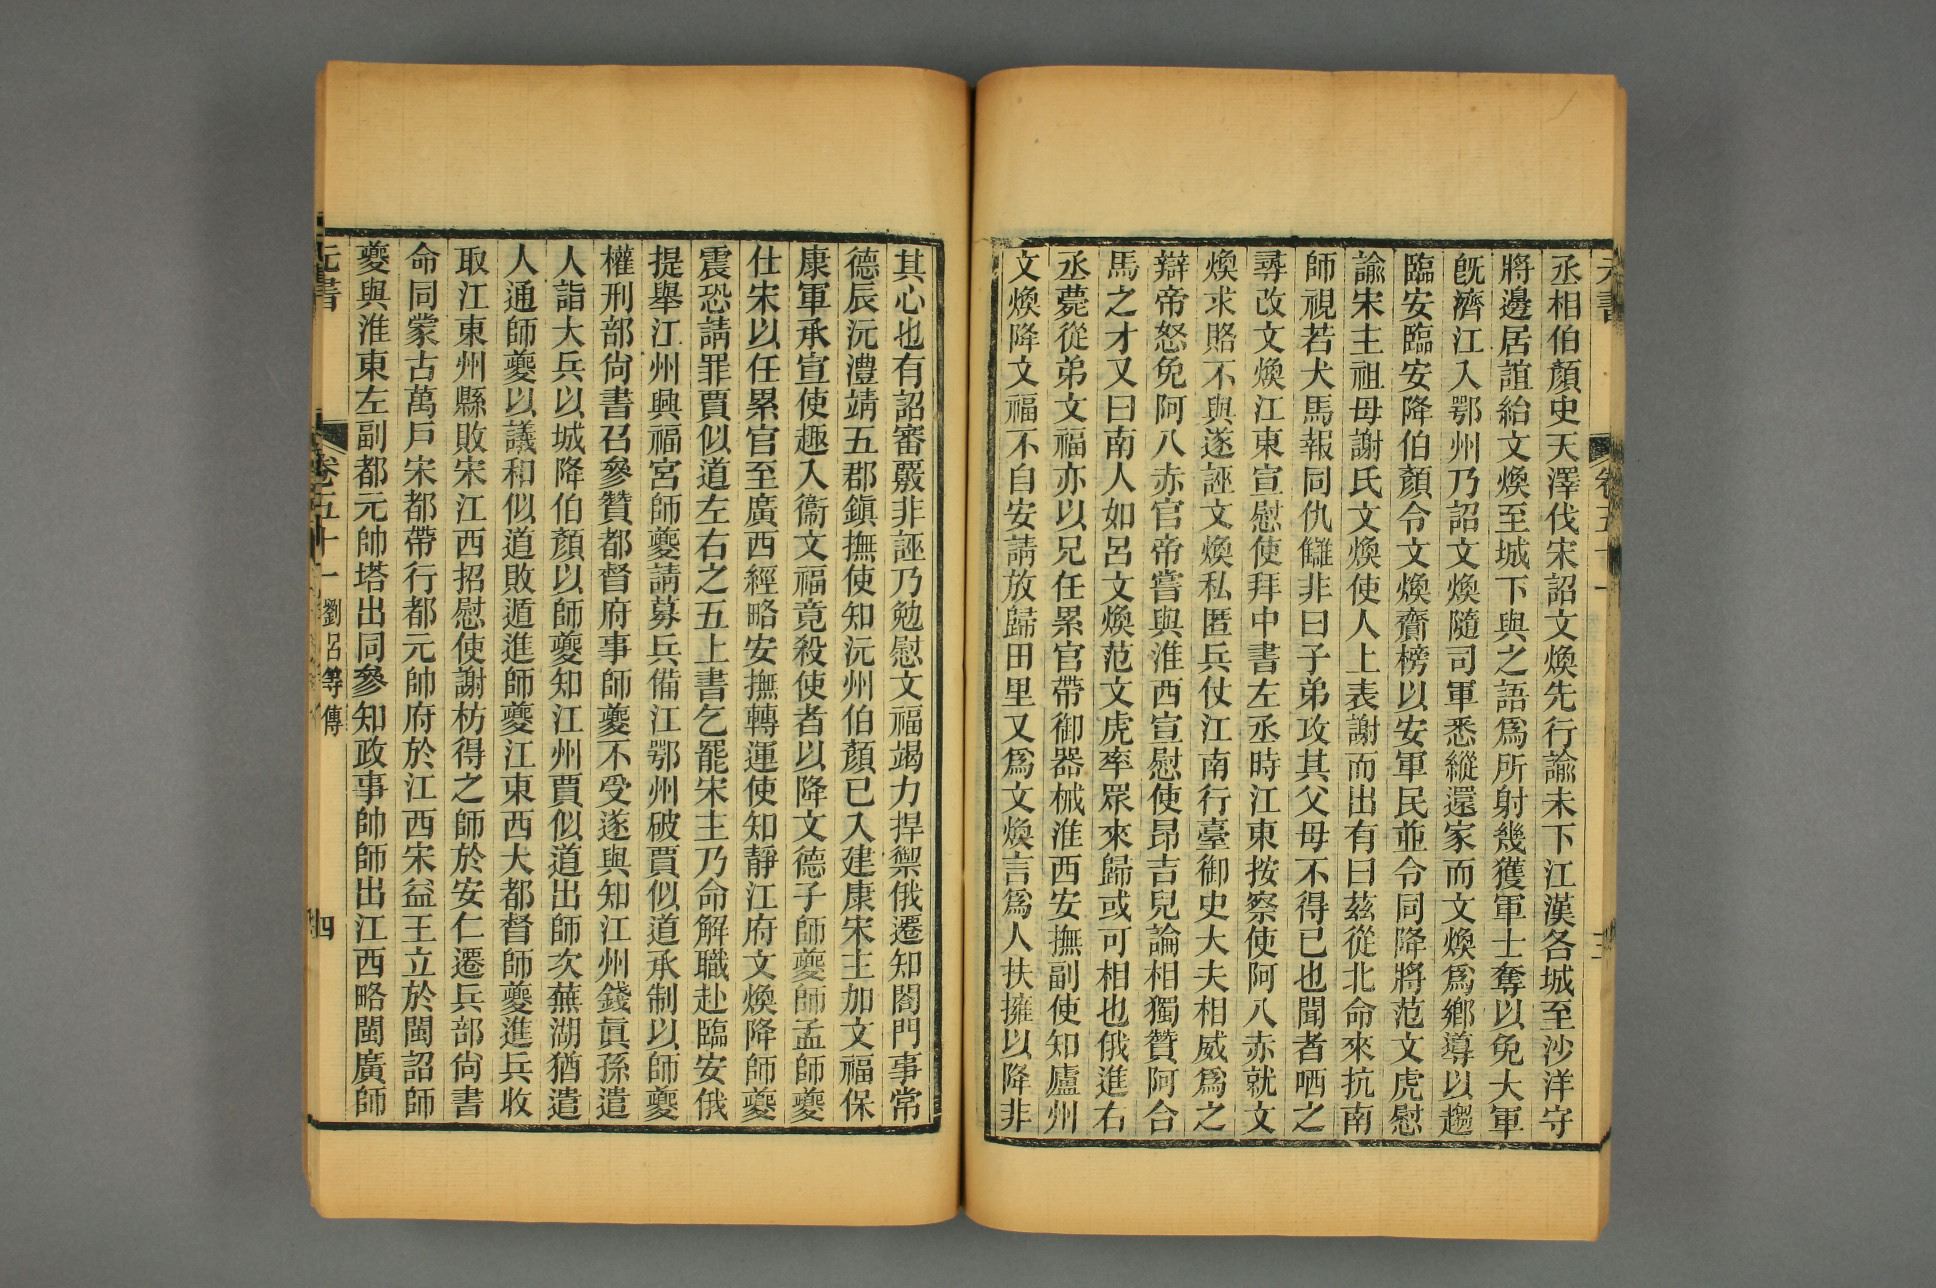 元書 卷五十一 三
丞相伯顏史天澤伐宋詔文煥先行諭未下江漢各城至沙洋守
將邊居誼紿文煥至城下與之語爲所射幾獲軍士奪以免大軍
旣濟江入鄂州乃詔文煥隨司軍悉縱還家而文煥爲鄕導以趨
臨安臨安降伯顏令文煥齎榜以安軍民並令同降將范文虎慰
諭宋主祖母謝氏文煥使人上表謝而出有曰茲從北命來抗南
師視若犬馬報同仇讎非曰子弟攻其父母不得已也聞者哂之
尋改文煥江東宣慰使拜中書左丞時江東按察使阿八赤就文
煥求賂不與遂誣文煥私匿兵仗江南行臺御史大夫相威爲之
辯帝怒免阿八赤官帝嘗與淮西宣慰使昂吉兒論相獨贊阿合
馬之才又曰南人如呂文煥范文虎率眾來歸或可相也俄進右
丞薨從弟文福亦以兄任累官帶御器械淮西安撫副使知廬州
文煥降文福不自安請放歸田里又爲文煥言爲人扶擁以降非
其心也有詔審覈非誣乃勉慰文福竭力捍禦俄遷知閤門事常
德辰沅澧靖五郡鎭撫使知沅州伯顏已入建康宋主加文福保
康軍承宣使趣入衞文福竟殺使者以降文德子師夔師孟師夔
仕宋以任累官至廣西經略安撫轉運使知靜江府文煥降師夔
震恐請罪賈似道左右之五上書乞罷宋主乃命解職赴臨安俄
提舉江州興福宮師夔請募兵備江鄂州破賈似道承制以師夔
權刑部尙書召參贊都督府事師夔不受遂與知江州錢眞孫遣
人詣大兵以城降伯顏以師夔知江州賈似道出師次蕪湖猶遣
人通師夔以議和似道敗遁進師夔江東西大都督師夔進兵收
取江東州縣敗宋江西招慰使謝枋得之師於安仁遷兵部尙書
命同蒙古萬戶宋都帶行都元帥府於江西宋益王立於閩詔師
夔與淮東左副都元帥塔出同參知政事帥師出江西略閩廣師
元書 卷五十一 劉呂等傳 四